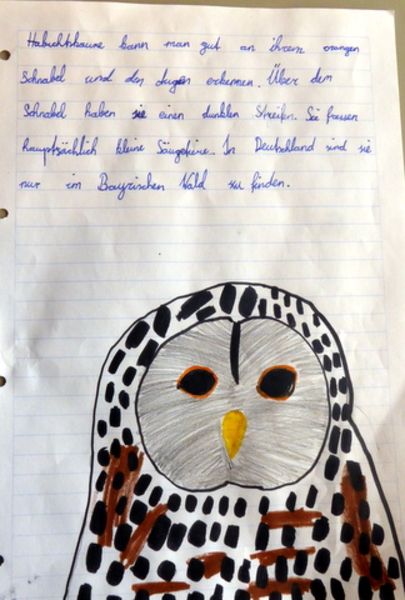 Habichtskäuze kann man gut an ihrem orangen
Schnabel und den Augen erkennen. Über dem
Schnabel haben sie einen dunklen Streifen. Sie fressen
hauptsächlich kleine Säugetiere. In Deutschland sind sie
nur im Bayrischen Wald zu finden.